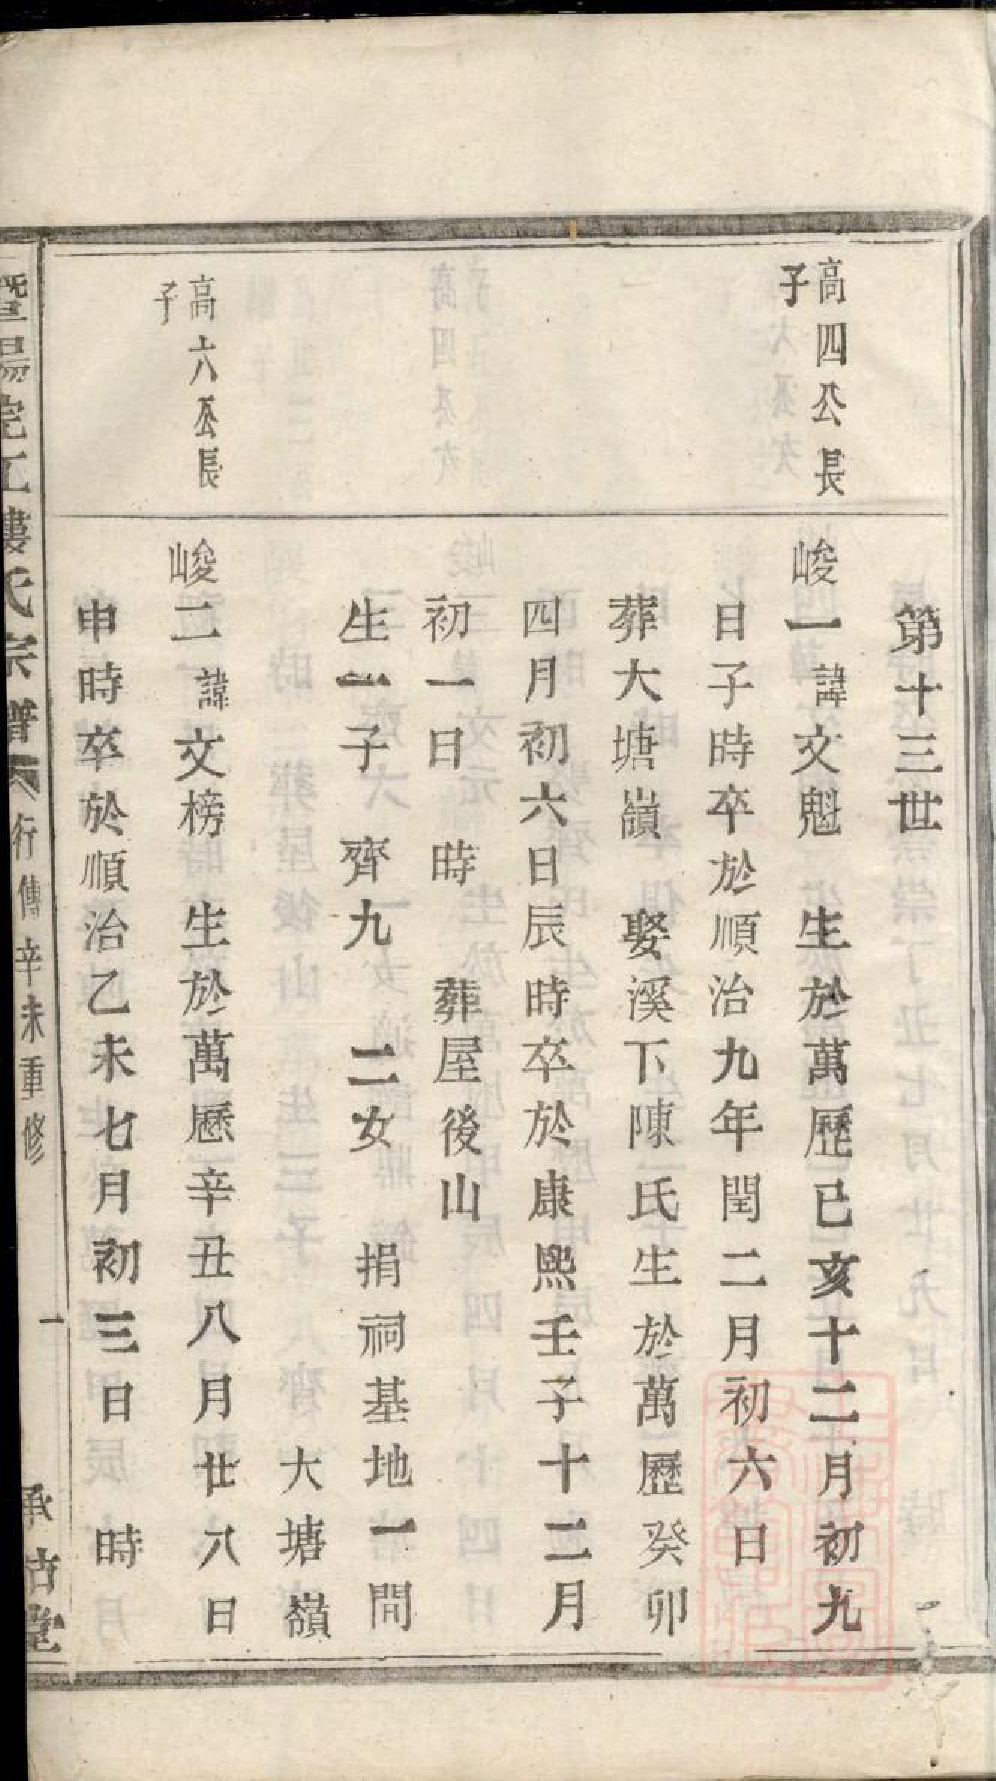 第十三世
高四公長
子
峻一諱文魁 生於萬歷己亥十二月初九
日子時卒於順治九年閏二月初六日
葬大塘嶺 娶溪下陳氏生於萬歷癸卯
四月初六日辰時卒於康熙壬子十二月
初一日 時 葬屋後山
生一子 齊九 二女 捐祠基地一間
大塘嶺
高六公長
子
峻二諱文榜 生於萬歷辛丑八月廿八日
申時卒於順治乙未七月初三日 時
暨陽浣江樓氏宗譜 行傳 辛未重修 一 承 堂